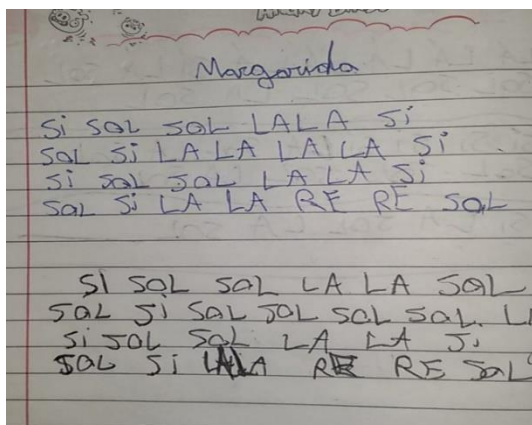 Margarida
Si SOL SOL LA LA Si
SOL Si LA LA LA LA Si
Si SOL SOL LA LA Si
SOL Si LA LA RE RE SOL
SI SOL SOL LA LA SOL
SOL Si SOL SOL SOL SOL
Si SOL SOL LA LA Si
SOL Si LA LA RE RE SOL